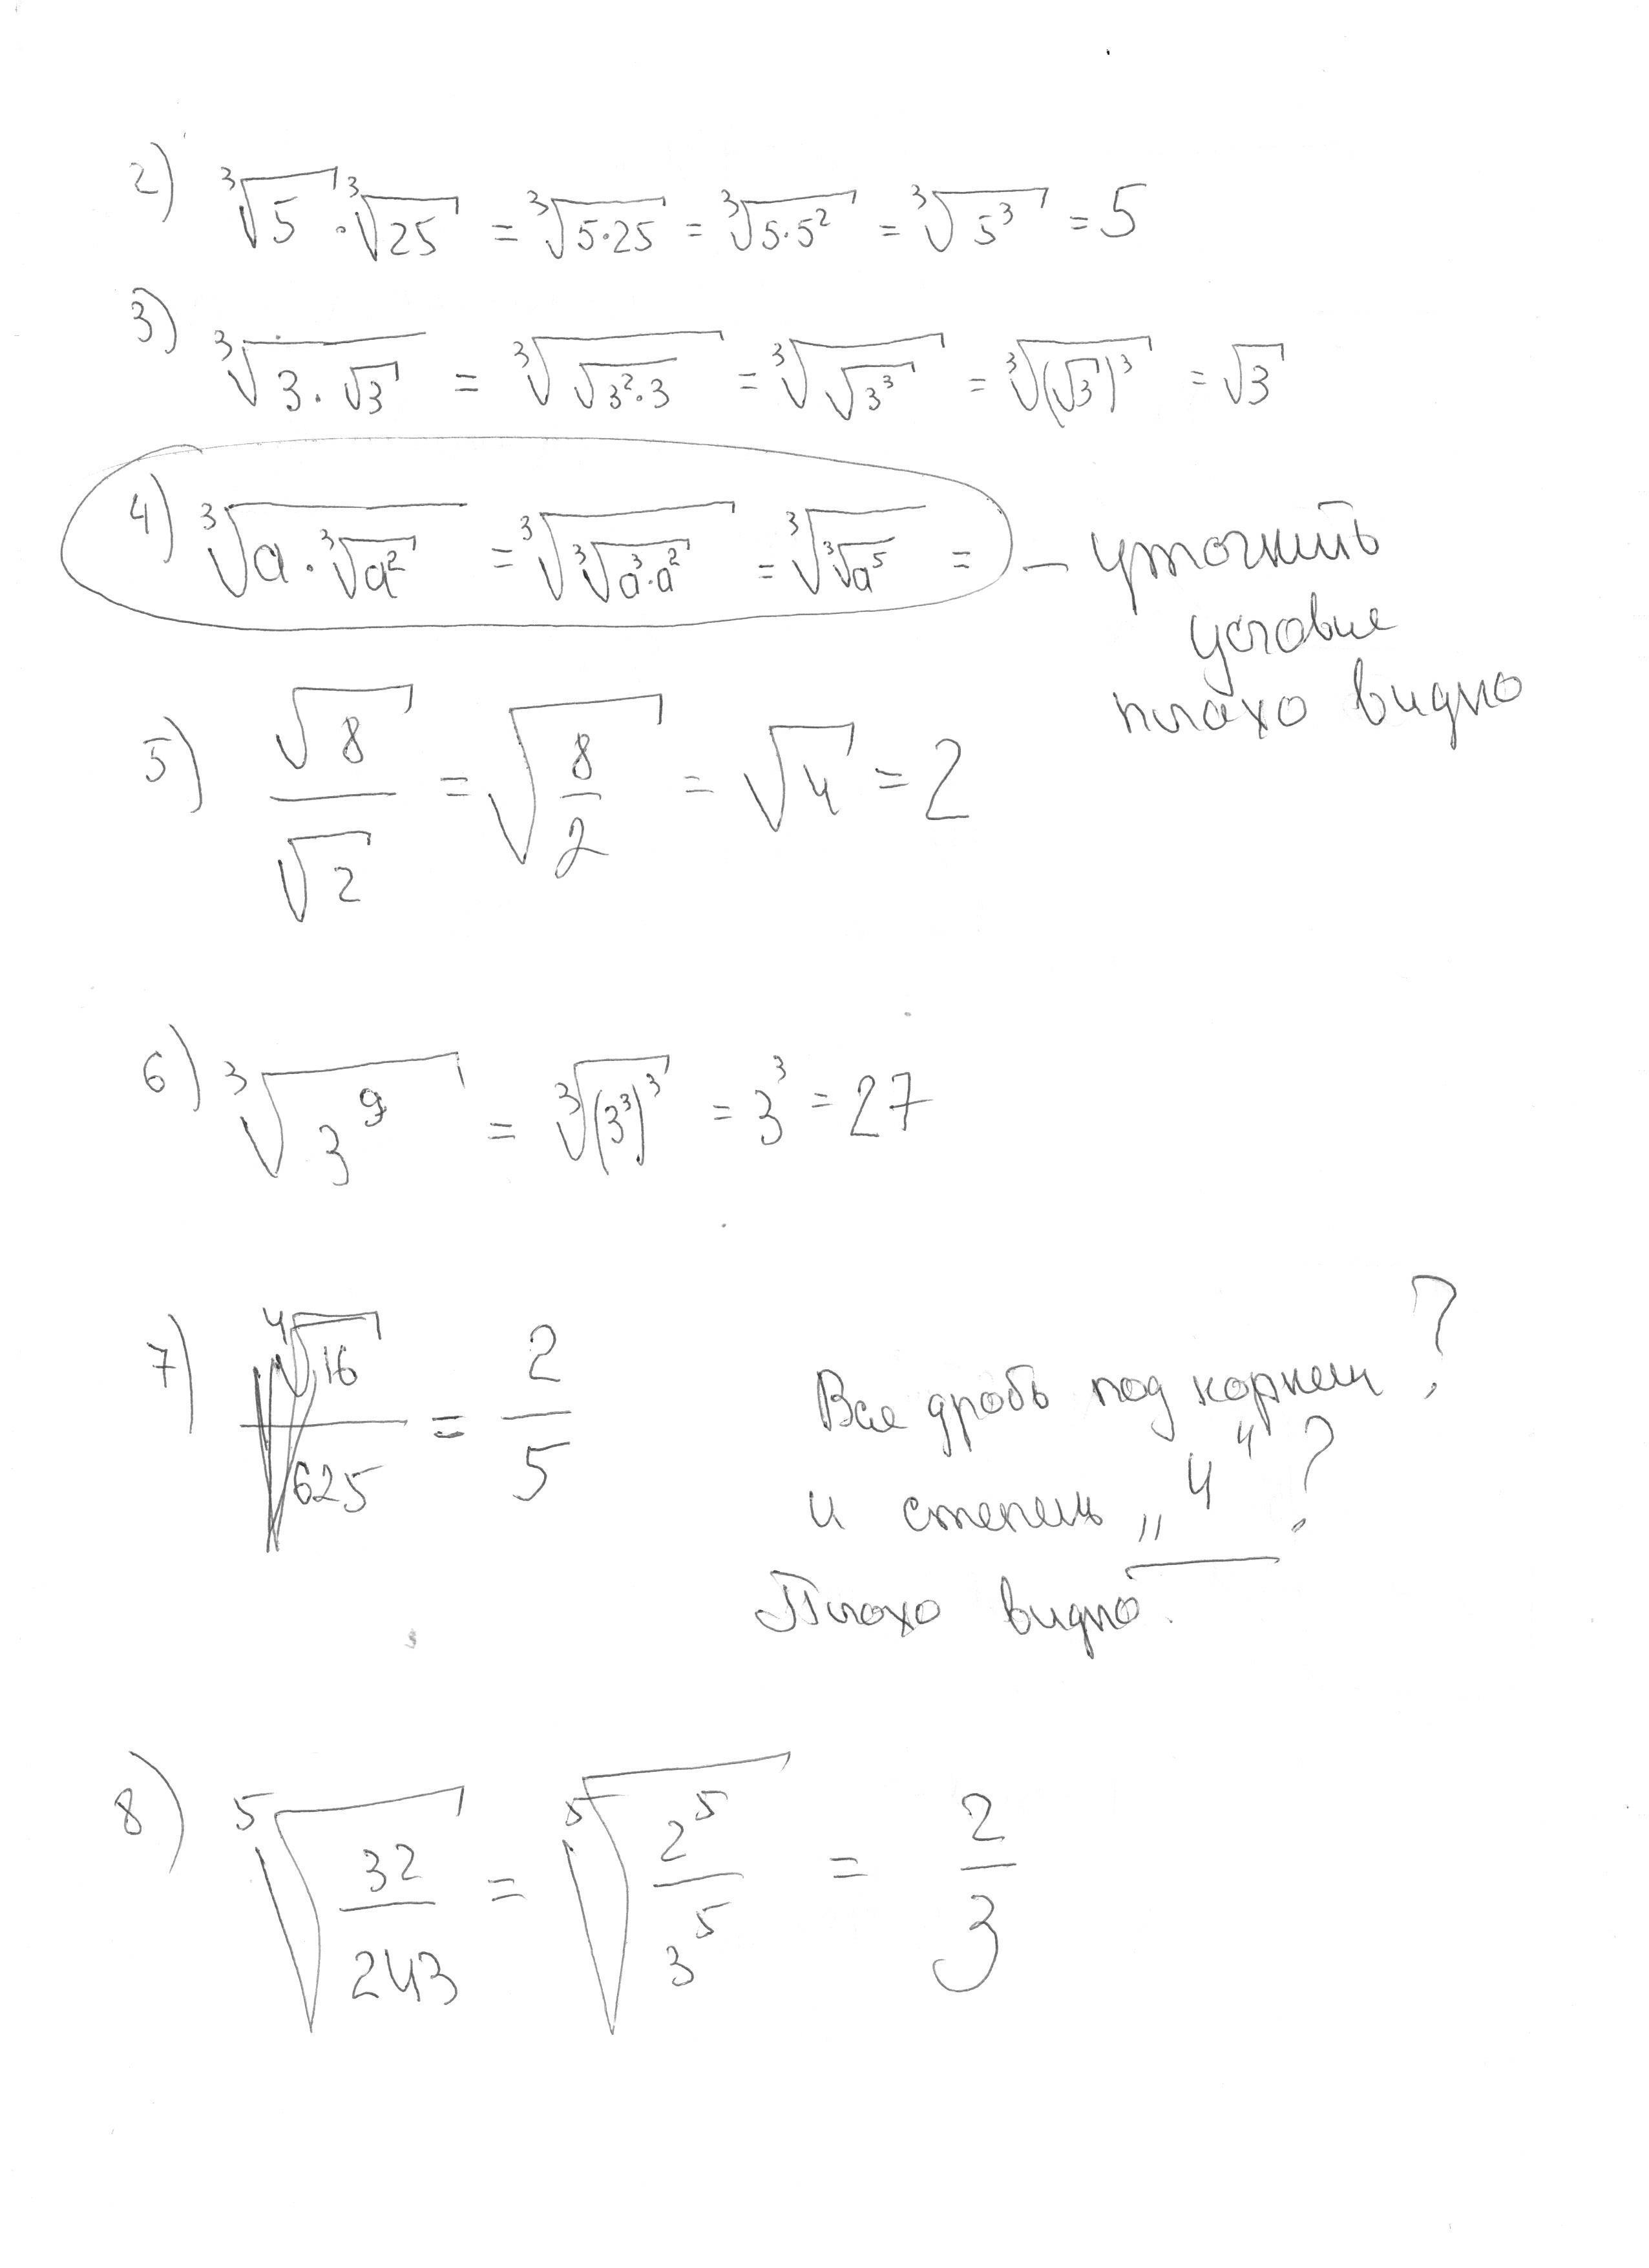 2) ∛5 · ∛25 = ∛(5·25) = ∛(5·5²) = ∛(5³) = 5
3) ∛(3·√3) = ∛(√(3²·3)) = ∛(√(3³)) = ∛((√3)³) = √3
4) ∛(a·∛(a²)) = ∛(∛(a³·a²)) = ∛(∛(a⁵)) = – уточнить
условие
плохо видно
5) √8/√2 = √(8/2) = √4 = 2
6) ∛(3⁹) = ∛((3³)³) = 3³ = 27
7) ⁴√16/625 = 2/5
Вся дробь под корнем?
и степень „4“?
Плохо видно.
8) ⁵√(32/243) = ⁵√(2⁵/3⁵) = 2/3